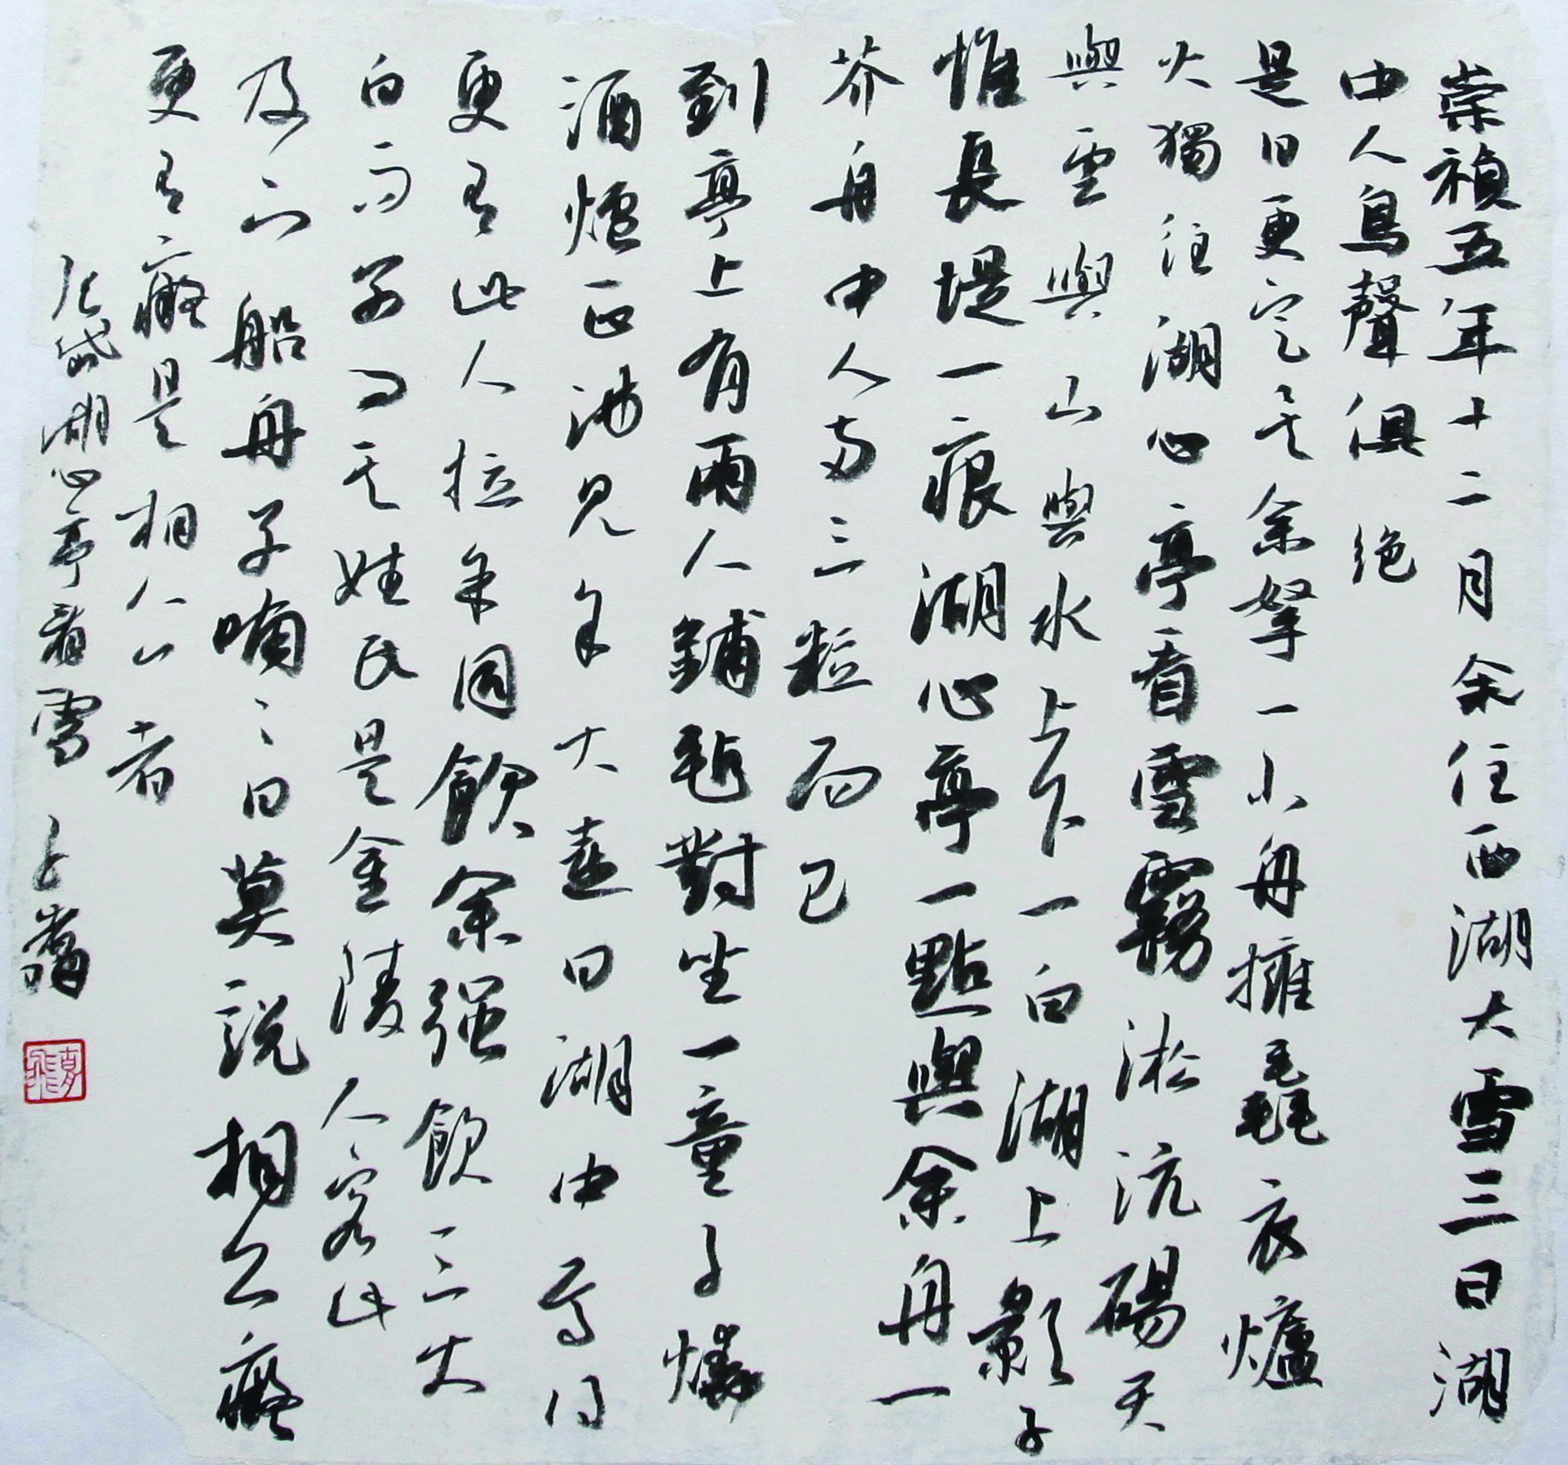 崇禎五年十二月余住西湖大雪三日湖
中人鳥聲俱絶
是日更定矣余拏一小舟擁毳衣爐
火獨往湖心亭看雪霧淞沆碭天
與雲與山與水上下一白湖上影子
惟長堤一痕湖心亭一點與余舟一
芥舟中人兩三粒而已
到亭上有兩人鋪氈對坐一童子燒
酒爐正沸見余大喜曰湖中焉得
更有此人拉余同飲余强飲三大
白而別問其姓氏是金陵人客此
及下船舟子喃〻曰莫說相公癡
更有癡是相公者
張岱湖心亭看雪